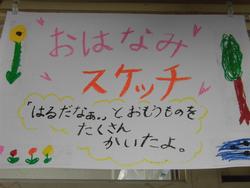 おはなみ
スケッチ
「はるだなぁ。」とおもうものを
たくさん
かいたよ。